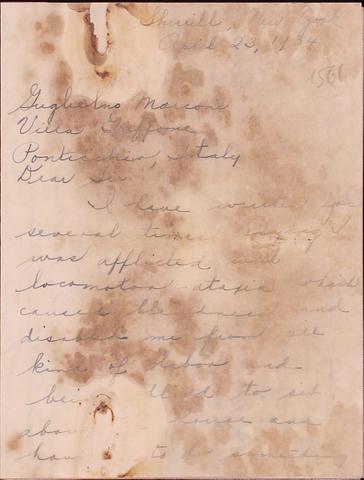 Sherrill, New York
April 23, 1934
1561
Guglielmo Marconi
Villa Griffone
Pontecchio, Italy
Dear Sir:
I have written you
several times saying I
was afflicted with
locomotor ataxia which
caused blindness and
disabled me from all
kind of labor and
being to sit
house and
to do something